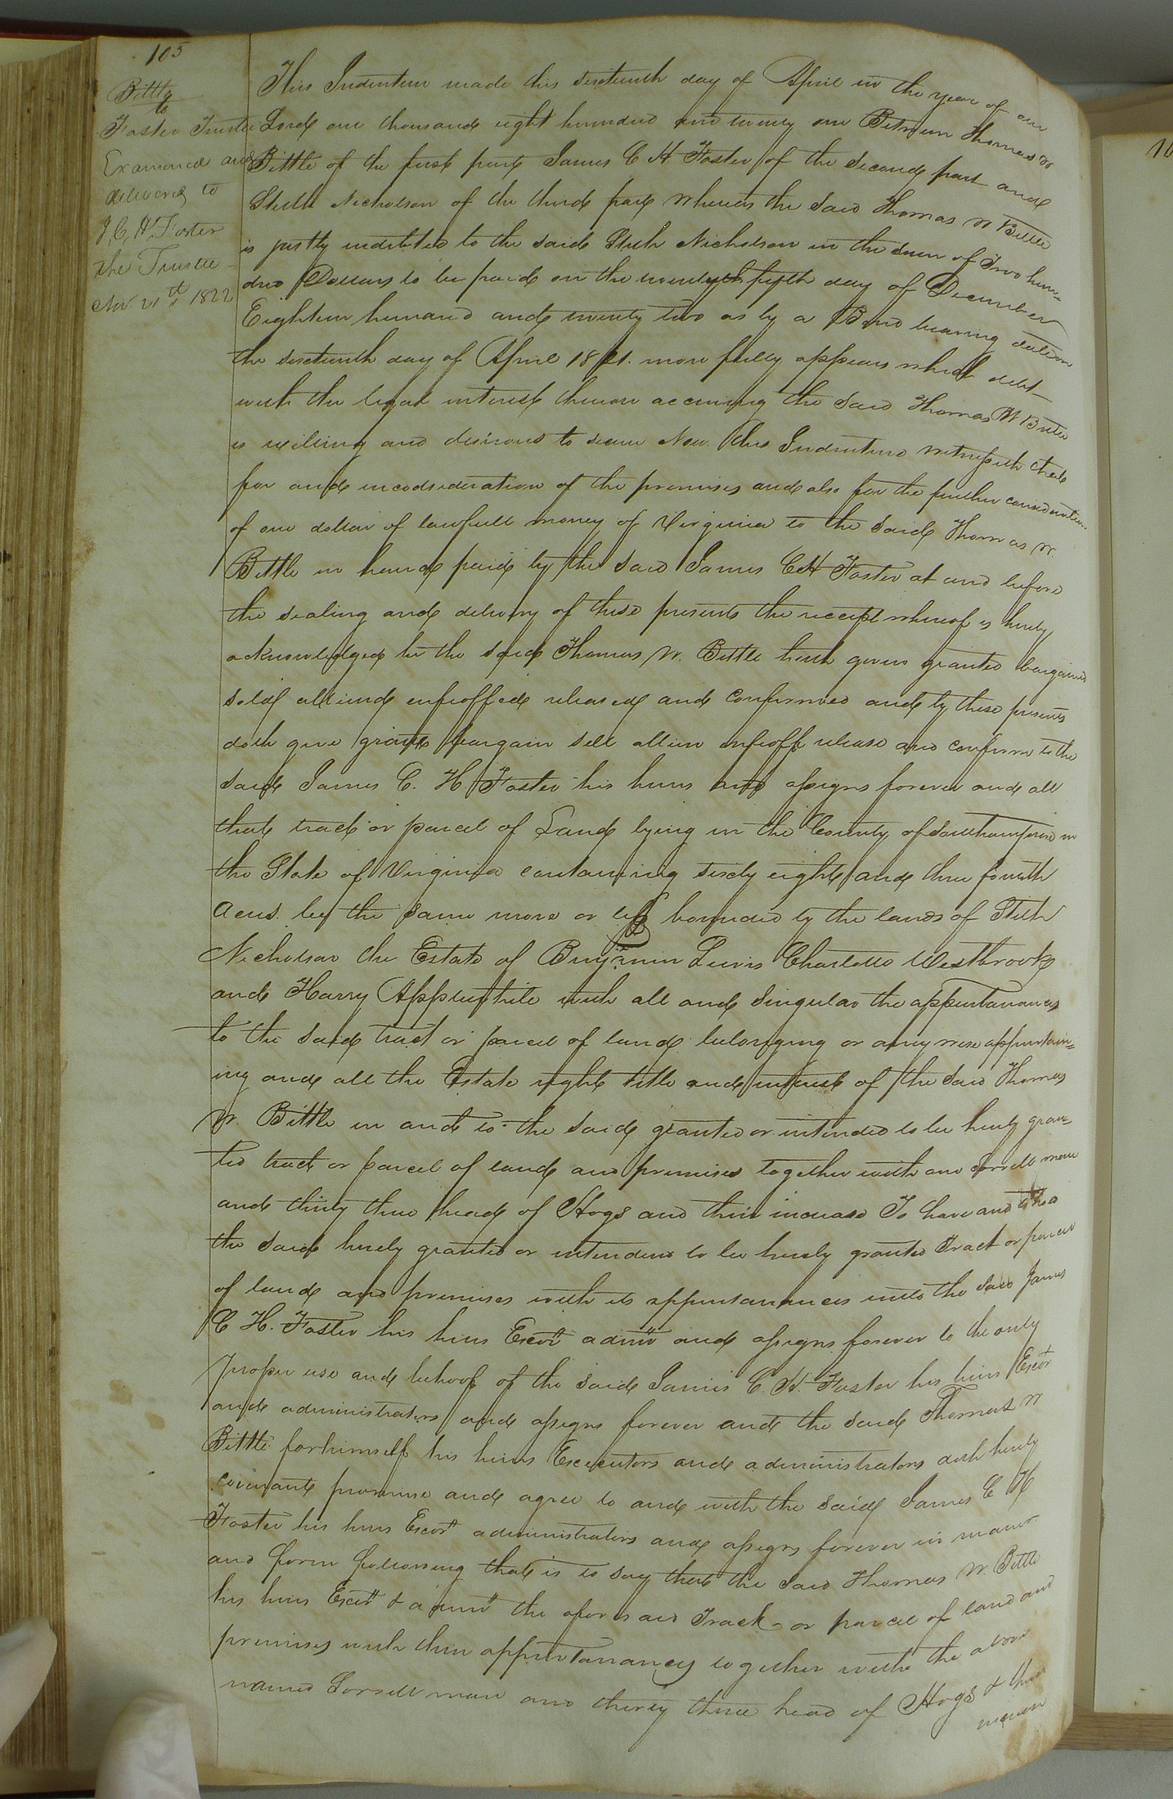 105
Bittle
to
Foster Trustee
Examined and
delivered to
J. C. H Foster
the Trustee
21st 1822
This Indenture made this sixteenth day of April in the year of our
Lord one thousand eight hundred and twenty one Between Thomas W
Bittle of the first part James C H Foster of the second part and
Stith Nicholson of the third part Whereas the said Thomas W Bittle
is justly indebted to the said Stith Nicholson in the sum of Two hun=
dred Dollars to be paid on the twenty fifth day of December
Eighteen hundred and twenty two as by a Bond bearing date on
the sixteenth day of April 1821. more fully appears which debt
with the legal interest thereon accruing the said Thomas W Bittle
is willing and desirous to secure Now this Indenture witnesseth that
for and in consideration of the premises and also for the further consideration
of one dollar of lawfull money of Virginia to the said Thomas W.
Bittle in hand paid by the said James C H Foster at and before
the sealing and delivery of these presents the receipt whereof is hereby
acknowledged he the said Thomas W. Bittle hath given granted bargained
sold aliend enfeoffed released and confirmed and by these presents
doth give grant bargain sell alien enfeoff release and confirm to the
said James C. H Foster his heirs and assigns forever and all
that tract or parcel of Land lying in the County of Southampton in
the State of Virginia containing sixty eight and three fourth
acres. be the same more or less bounded by the lands of Stith
Nicholson the Estate of Benjamin Lewis Charlotte Westbrook
and Harry Applewhite with all and singular the appurtanances
to the said tract or parcel of land belonging or any wise appertain=
ing and all the Estate right title and interest of the said Thomas
W. Bittle in and to the said granted or intended to be hereby gran=
ted tract or parcel of land and premises together with one sorrell mare
and thirty three head of Hogs and their increase To have and to hold
the said hereby granted or intended to be hereby granted Tract or parcel
of land and premises with its appurtanances unto the said James
C H. Foster his heirs Exors admrs and assigns forever to the only
proper use and behoof of the said James C. H. Foster his heirs Exors
and administrators and assigns forever and the said Thomas W
Bittle for himself his heirs Executors and administrators doth hereby
covenant promise and agree to and with the said James C H
Foster his heirs Exors administrators and assigns forever in maner
and form following that is to say that the said Thomas W Bittle
his heirs Exors & admrs the aforesaid Track or parcel of land and
premises with their appurtanances together with the above
named Sorrell mare and thirty three head of Hogs & their
increase